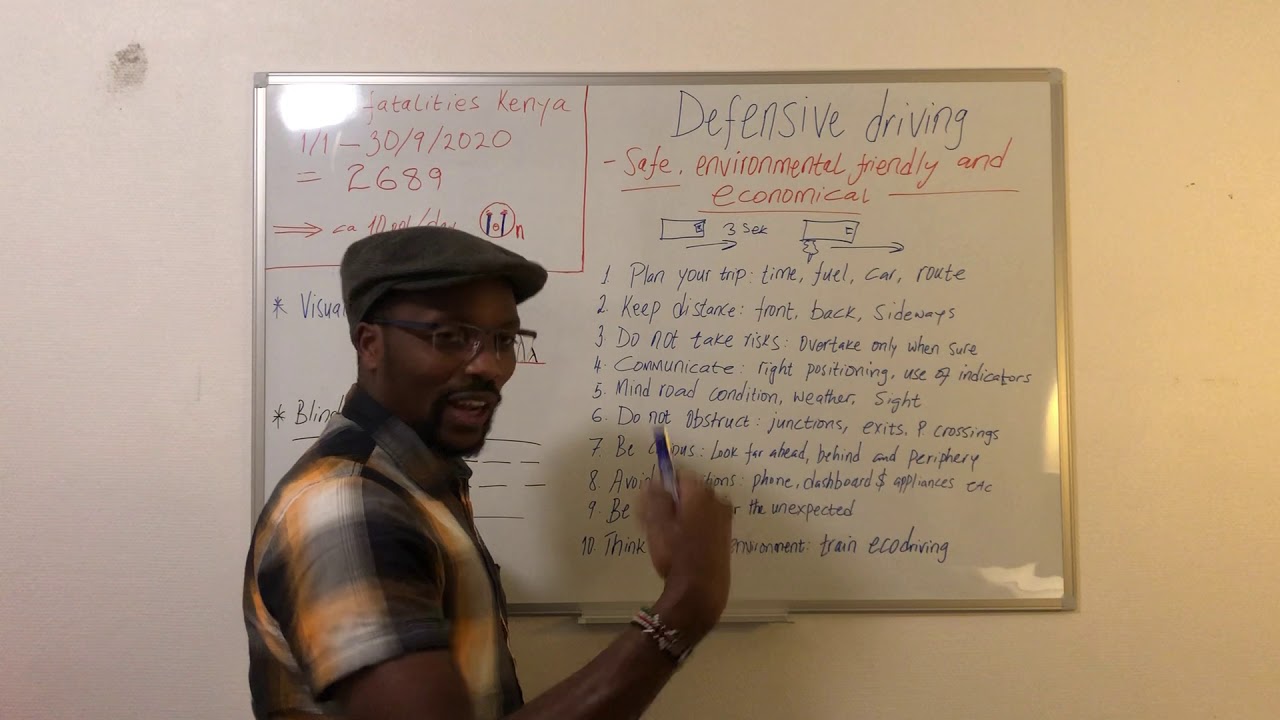 fatalities Kenya
1/1 – 30/9/2020
= 2689
⟹ ca 10
* Visual
* Blind
Defensive driving
- Safe, environmental friendly and
economical
3 Sek
1. Plan your trip: time, fuel, car, route
2. Keep distance: front, back, Sideways
3. Do not take risks: Overtake only when sure
4. Communicate: right positioning, use of indicators
5. Mind road condition, weather, Sight
6. Do not Obstruct: junctions, exits, P. crossings
7. Be : Look far ahead, behind and periphery
8. Avoid : phone, dashboard & appliances etc
9. Be the unexpected
10. Think environment: train ecodriving